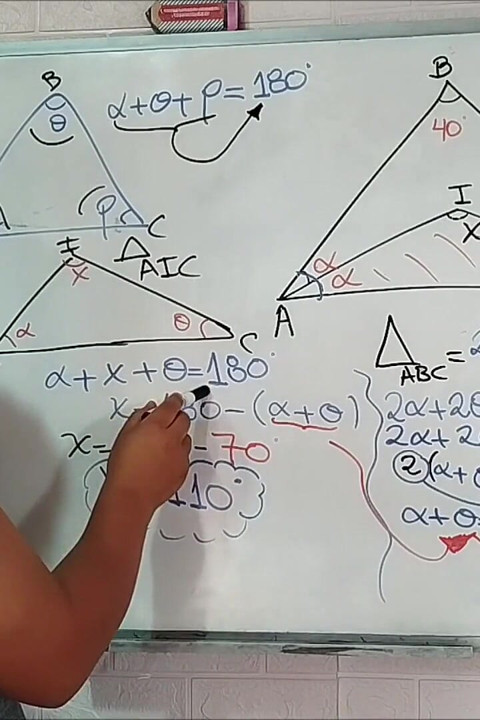 B
α+θ+ρ=180°
θ
φ
C
I
△AIC
x
α
θ
C
α+x+θ=180°
-(α+θ)
x=
-70
110°
B
40°
I
x
α
α
A
△ABC=
2α+2θ
2α+2
②(α+
α+θ